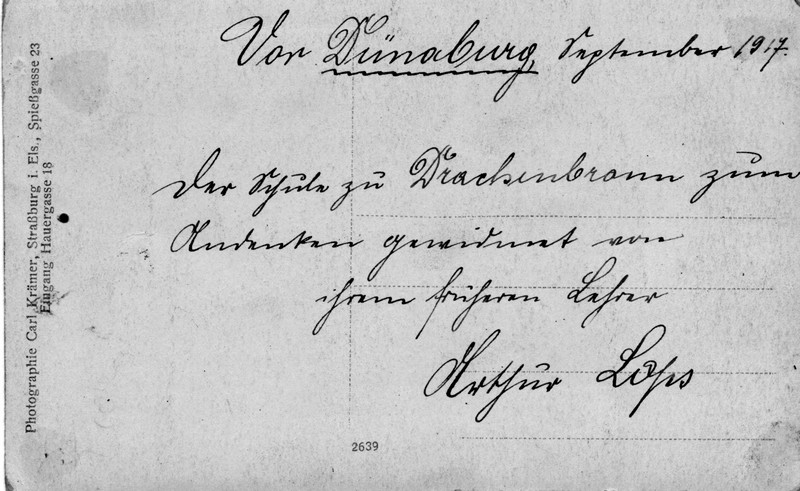 Vor Dünaburg, September 1917.
Der Schule zu Drachenbronn zum
Andenken gewidmet von
ihrem früheren Lehrer
Arthur
Photographie Carl Krämer, Straßburg i. Els., Spießgasse 23
Eingang Hauergasse 18
2639